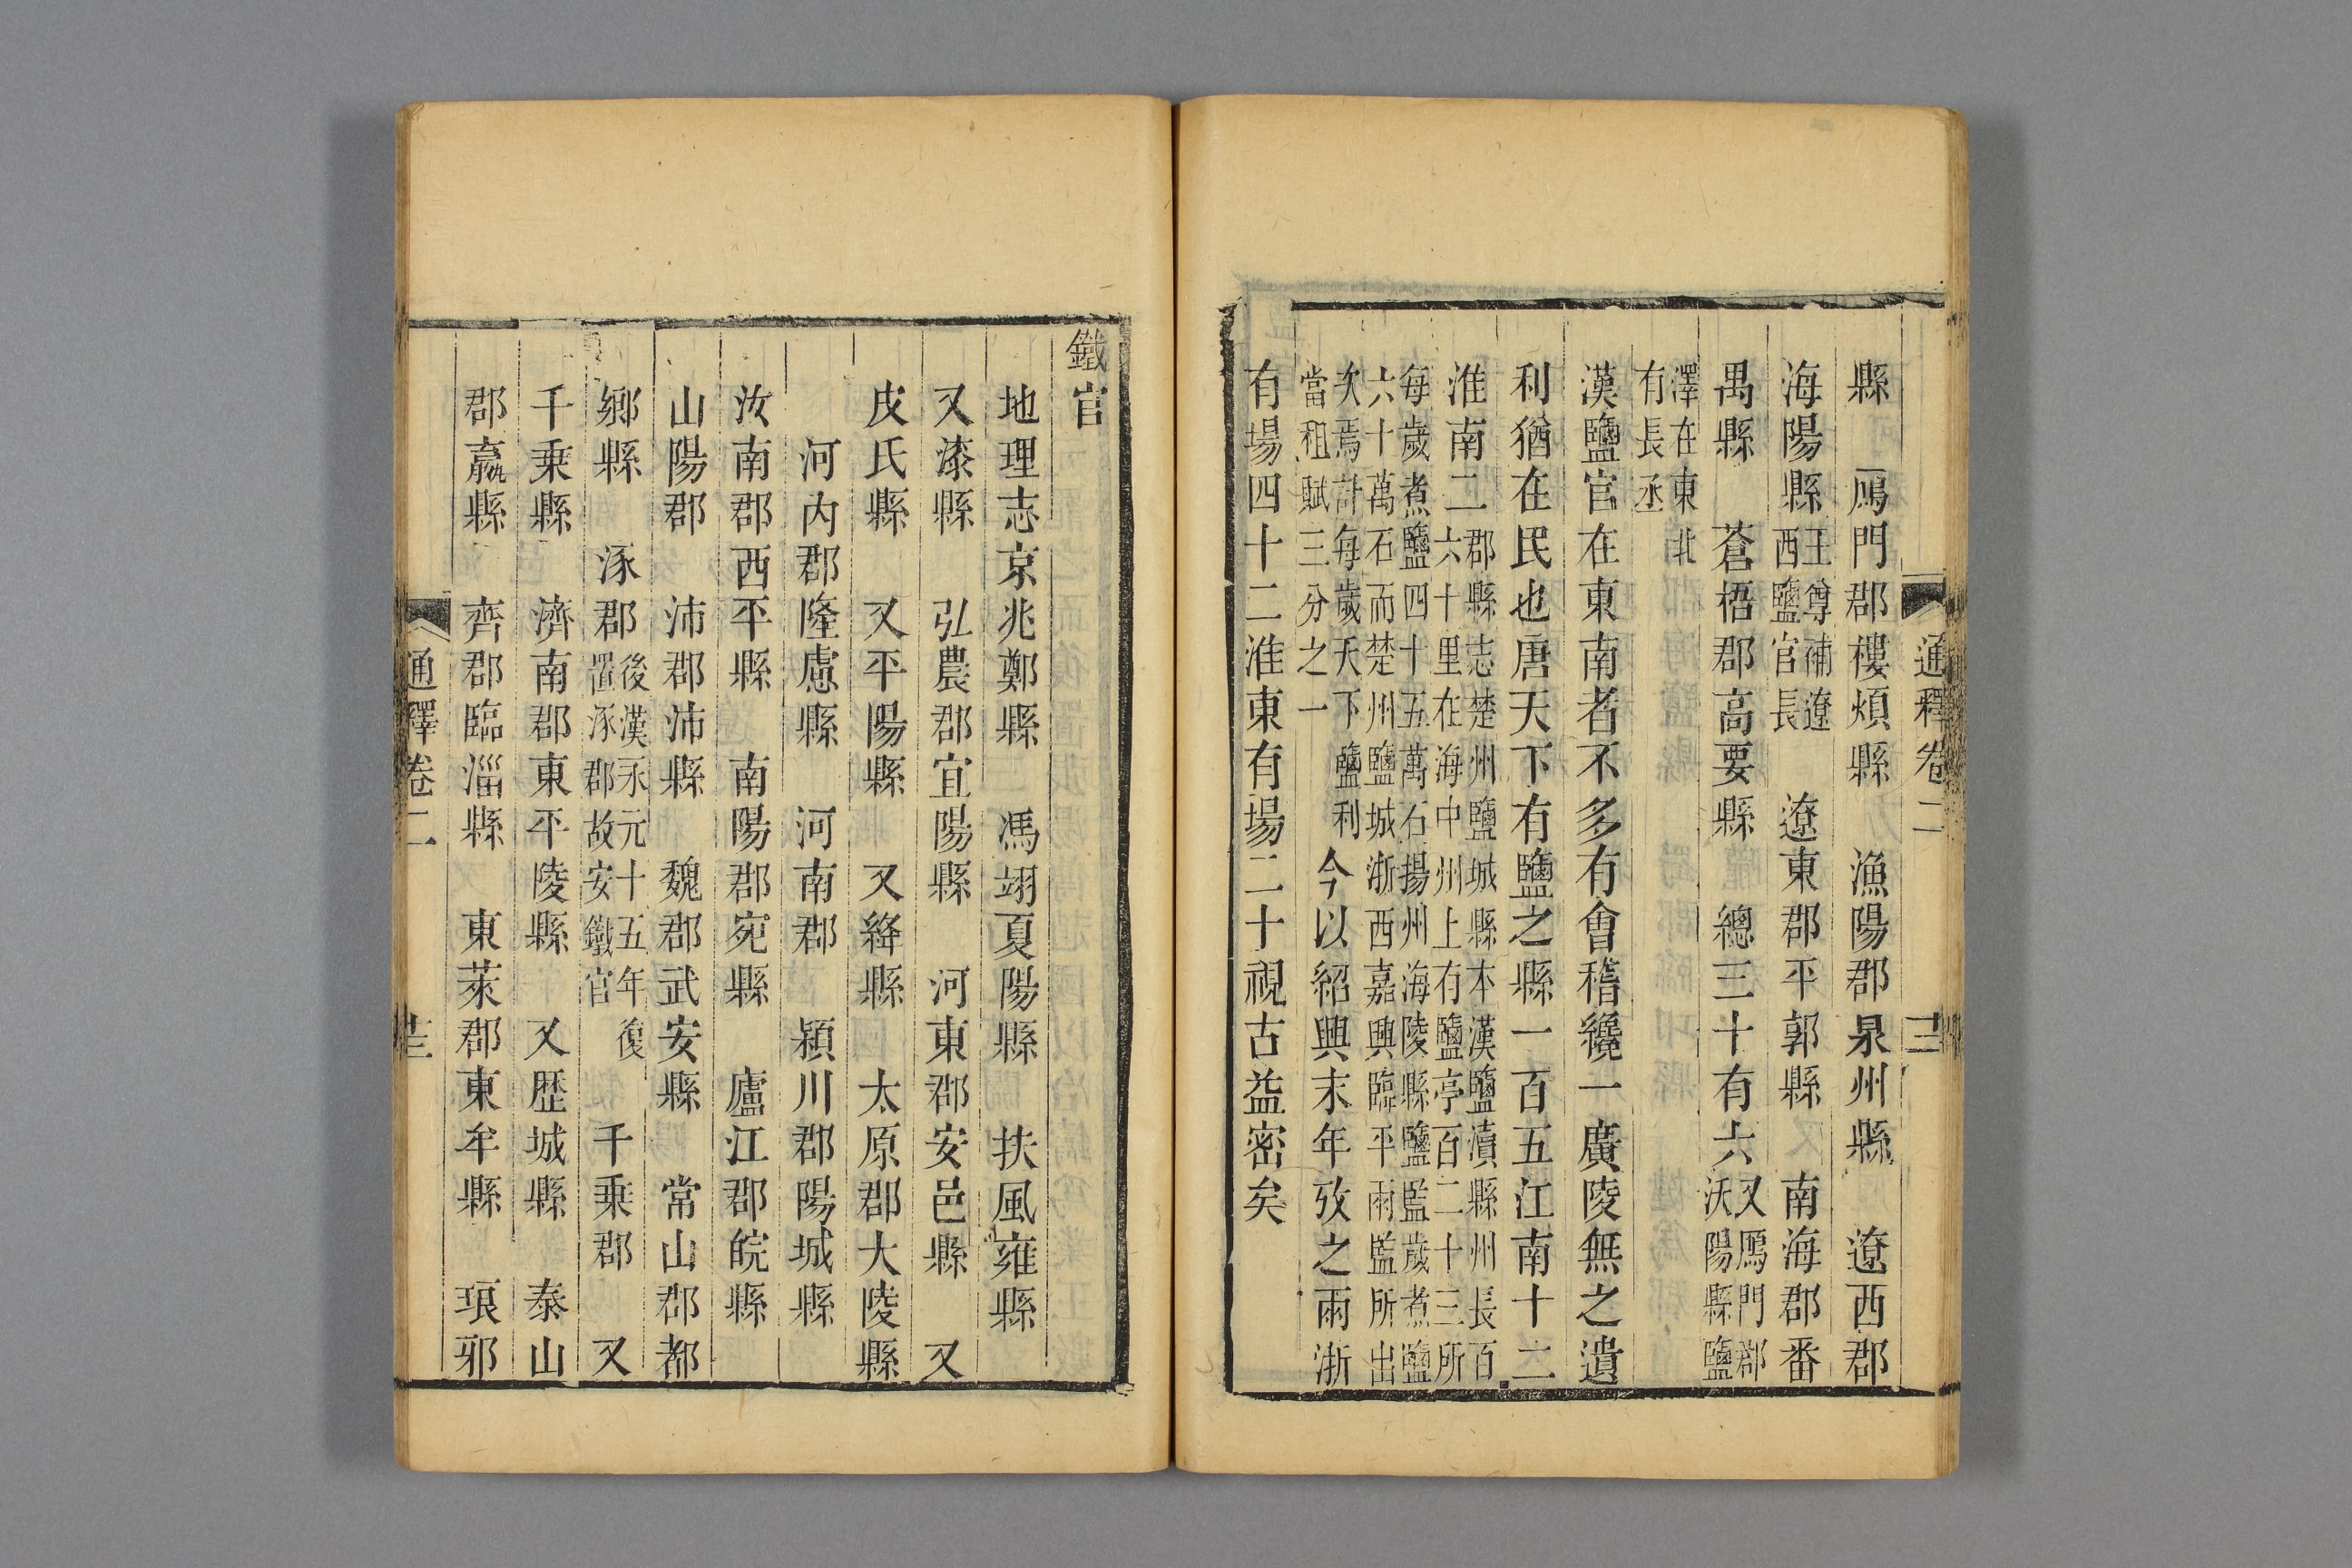 通釋卷二
縣　鴈門郡樓煩縣　漁陽郡泉州縣　遼西郡
海陽縣王尊補遼西鹽官長　遼東郡平郭縣　南海郡番
禺縣　蒼梧郡高要縣　總三十有六又鴈門郡沃陽縣鹽
澤在東北有長丞
漢鹽官在東南者不多有會稽纔一廣陵無之遺
利猶在民也唐天下有鹽之縣一百五江南十二
淮南二郡縣志楚州鹽城縣本漢鹽瀆縣州長百六十里在海中州上有鹽亭百二十三所
每歲煮鹽四十五萬石揚州海陵縣鹽監歲煮鹽六十萬石而楚州鹽城浙西嘉興臨平兩監所出
次焉計每歲天下鹽利當租賦三分之一今以紹興末年攷之兩浙
有場四十二淮東有場二十視古益密矣
鐵官
地理志京兆鄭縣　馮翊夏陽縣　扶風雍縣
又漆縣　弘農郡宜陽縣　河東郡安邑縣　又
皮氏縣　又平陽縣　又絳縣　太原郡大陵縣
河內郡隆慮縣　河南郡　潁川郡陽城縣
汝南郡西平縣　南陽郡宛縣　廬江郡皖縣
山陽郡　沛郡沛縣　魏郡武安縣　常山郡都
鄉縣　涿郡後漢永元十五年復置涿郡故安鐵官　千乗郡　又
千乗縣　濟南郡東平陵縣　又歷城縣　泰山
郡嬴縣　齊郡臨淄縣　東萊郡東牟縣　琅邪
通釋卷二